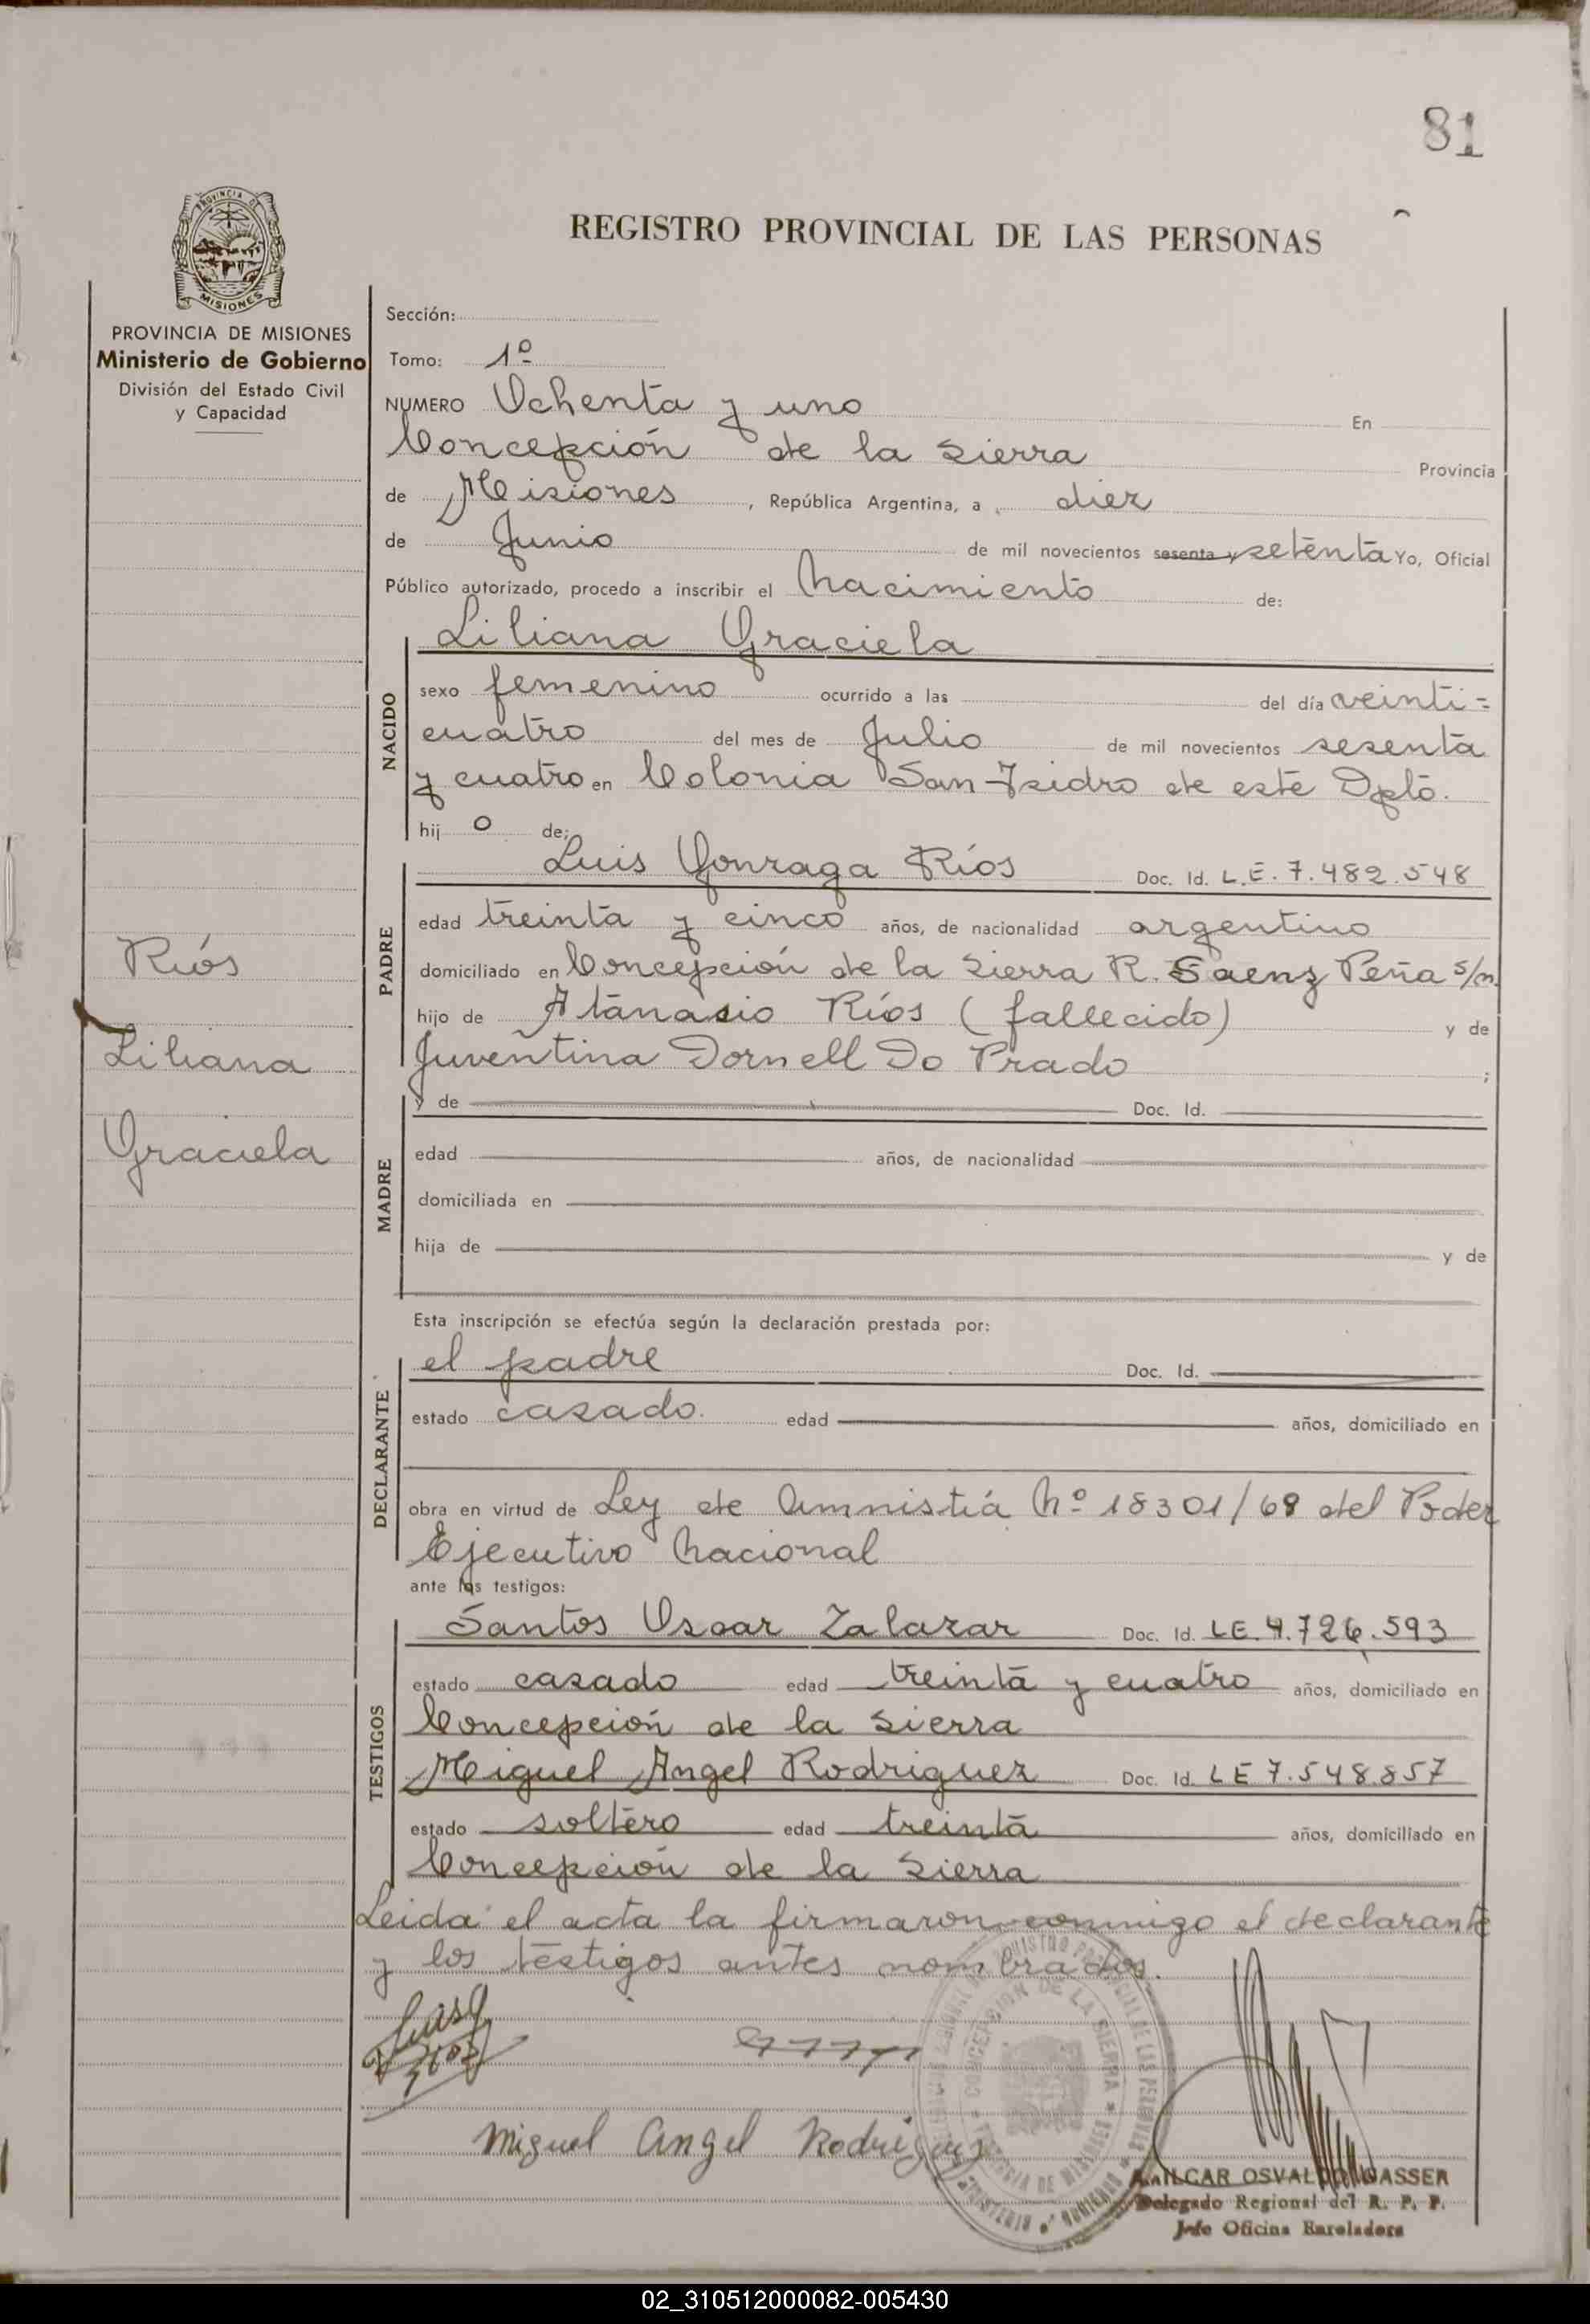 81
PROVINCIA DE
MISIONES
REGISTRO PROVINCIAL DE LAS PERSONAS
PROVINCIA DE MISIONES
Ministerio de Gobierno
División del Estado Civil
y Capacidad
Ríos
Liliana
Graciela
Sección:
Tomo: 1º
NUMERO Ochenta y uno En
Concepción de la Sierra Provincia
de Misiones, República Argentina, a diez
de Junio de mil novecientos sesenta y setenta Yo, Oficial
Público autorizado, procedo a inscribir el Nacimiento de:
NACIDO
Liliana Graciela
sexo femenino ocurrido a las del día veinti-
cuatro del mes de Julio de mil novecientos sesenta
y cuatro en Colonia San Isidro de este Dpto.
hij o de:
PADRE
Luis Gonzaga Ríos Doc. Id. L.E. 7.482.548
edad treinta y cinco años, de nacionalidad argentino
domiciliado en Concepción de la Sierra R. Saenz Peña s/n
hijo de Atanasio Ríos (fallecido) y de
Juventina Dornell Do Prado ;
MADRE
y de Doc. Id.
edad años, de nacionalidad
domiciliada en
hija de y de
Esta inscripción se efectúa según la declaración prestada por:
DECLARANTE
el padre Doc. Id.
estado casado. edad años, domiciliado en
obra en virtud de Ley de Amnistía Nº 18301/69 del Poder
Ejecutivo Nacional
ante los testigos:
TESTIGOS
Santos Oscar Zalazar Doc. Id. LE. 4.726.593
estado casado edad treinta y cuatro años, domiciliado en
Concepción de la Sierra
Miguel Angel Rodriguez Doc. Id. LE 7.548.857
estado soltero edad treinta años, domiciliado en
Concepción de la Sierra
Leida el acta la firmaron conmigo el declarante
y los testigos antes nombrados.
Miguel Angel Rodriguez
CONCEPCION DE LA SIERRA
AMILCAR OSVALDO GASSER
Delegado Regional del R. P. P.
Jefe Oficina Enroladora
02_310512000082-005430